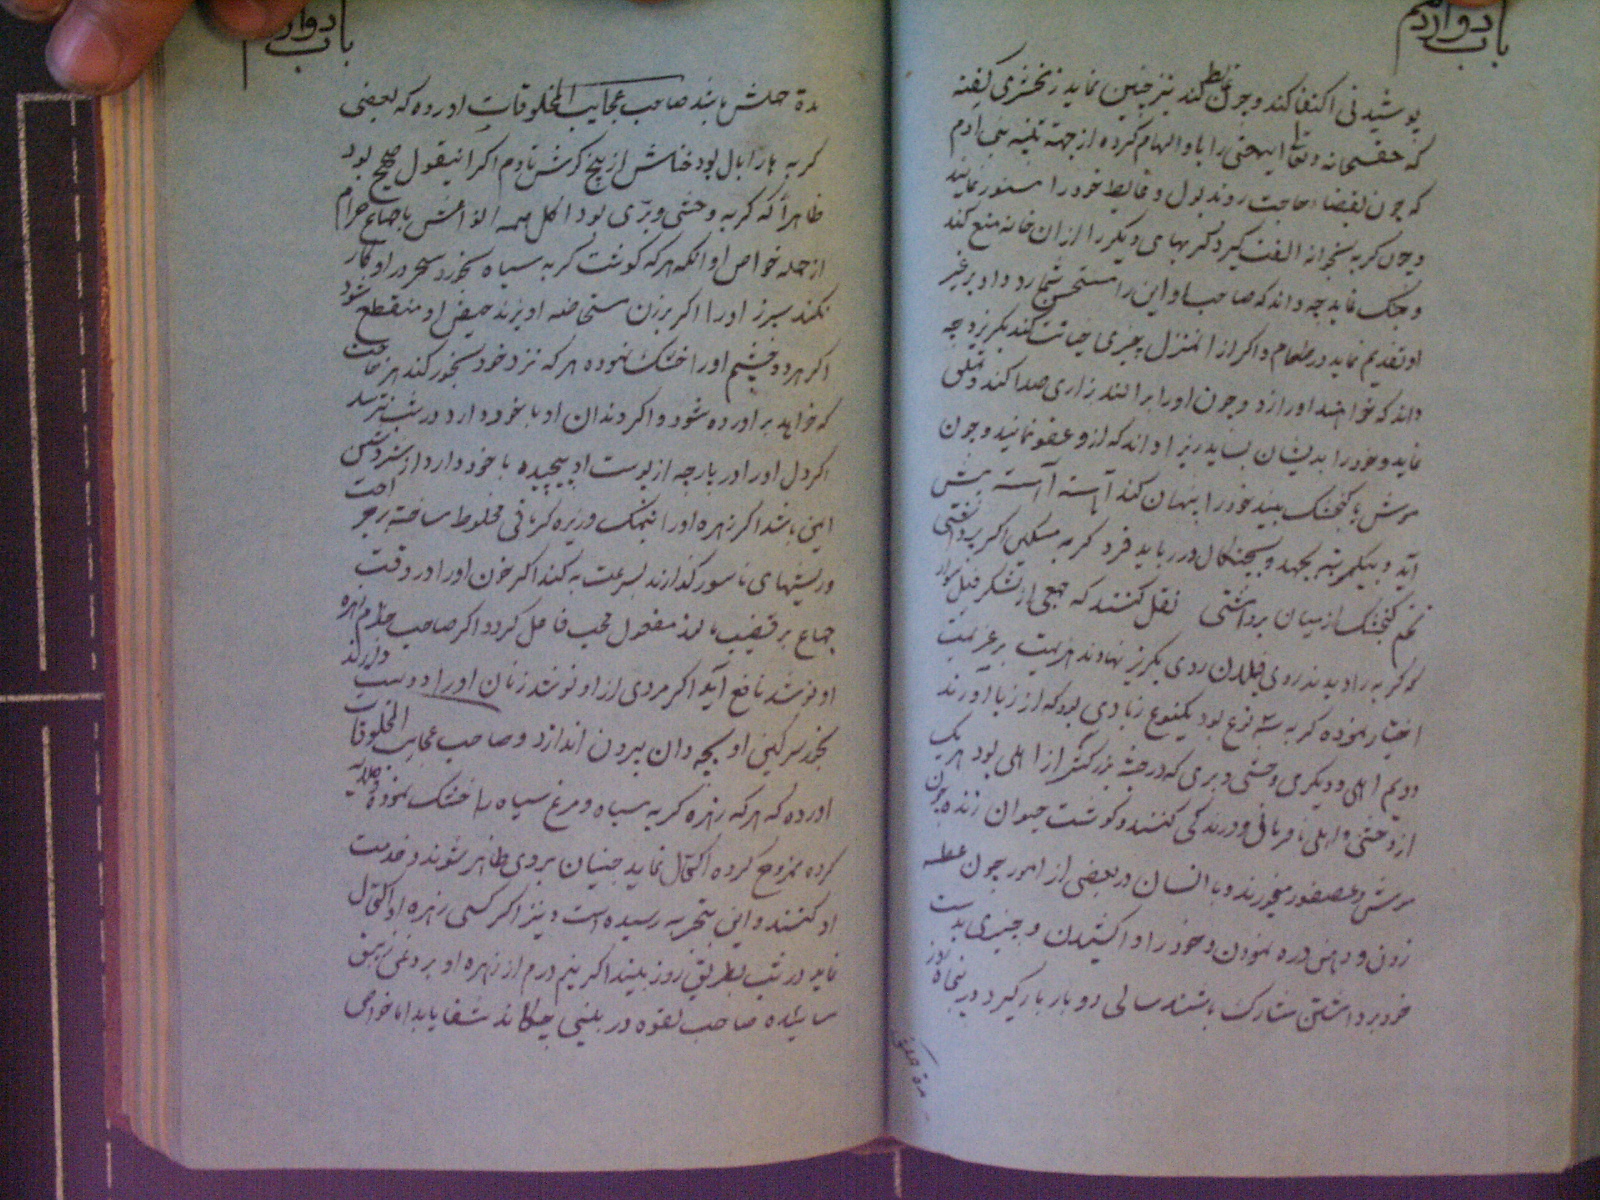 باب دوازدهم
پوشیدنی اکتفا کند و چون غایط کند نیز چنین نماید زمخشری گفته
که حقسبحانه و تعالی اینمعنی را باو الهام کرده از جهة تنبیه بنی ادم
که چون بقضاء حاجت روند بول و غایط خود را مستور نمایند
و چون کربه بخانه الفت کیرد کربهای دیکر را از ان خانه منع کند
و جنک نماید چه داند که صاحب او این را مستحسن شمارد و او بر غیر
او تقدیم نماید در طعام و اکر از المنزل چیزی خیانت کند بکریزد چه
داند که خواهند او را زد و چون او را براانند زاری صدا کند و تملق
نماید و خود را بدیشان بساید زیرا داند که از و عفو نمایند و چون
موش یا کنجشک بیند خود را پنهان کند آهسته آهسته پیش
آید و بیکمرتبه بجهد و بچنکال در رباید فرد کربه مسکین اکر پر داشتی
تخم کنجشک از میان برداشتی نقل کنند که جمعی از لشکر فیل سوار
که کربه را دیدند روی فیلان روی بکریز نهادند هزیمت بر عزیمت
اختیار نموده کربه سه نوع بود یکنوع زبادی بود که از زباد اورند
دویم اهلی و دیکری وحشی و بری که در جثه بزرکتر از اهلی بود هر یک
از وحشی و اهلی نافرمانی و درندکی کنند و کوشت حیوان زنده چون
موش و عصفور میخورند و با انسان در بعضی از امور چون عطسه
زدن و دهن دره نمودن و خود را وا کشیدن و چیزی بدست
خود برداشتن مشارک باشند سالی دو بار بار کیرد در پنجاه روز
مدة حملش
باب دوازدهم
مدة حملش باشد صاحب عجایب المخلوقات اورده که بعضی
کربه ها را بال بود خفاش از بیخ کوش تا دم اکر اینقول صحیح بود
ظاهراً که کربه وحشی و بری بود اکل همه انواعش باجماع حرام
از جمله خواص او انکه هر که کوشت کربه سیاه بخورد سحر در او کار
نکند سپرز او را اکر بر زن مستحاضه او یزند حیض او منقطع شود
اکر هر دو چشم او را خشک نموده هر که نزد خود بخور کند هر حاجت
که خواهد براورده شود و اکر دندان او با خود دارد در شب نترسد
اکر دل او را در پارچه از پوست او پیچیده با خود دارد از دشمن
ایمن باشد اکر زهره او را بنمک و زیره کرمانی مخلوط ساخته بر جراحت
و ریشهای ناسور کذارند بسرعت به کند اکر خون او را در وقت
جماع بر قضیب مالند مفعول محب فاعل کردد اکر صاحب جذام زهره
او نوشد نافع آید اکر مردی از او نوشد زنان او را دوست دارند
بخور سرکین او بچه دان بیرون اندازد و صاحب عجایب المخلوقات
اورده که هر که زهره کربه سیاه و مرغ سیاه را خشک نموده صلایه
کرده ممزوج کرده اکتحال نماید جنیان بر وی ظاهر شوند و خدمت
او کنند و این بتجربه رسیده است و نیز اکر کسی زهره او اکتحال
نماید در شب بطریق روز بیند اکر نیم درم از زهره او بروغن زیبق
سائیده صاحب لقوه در بینی چکاند شفا یابد اما خواص